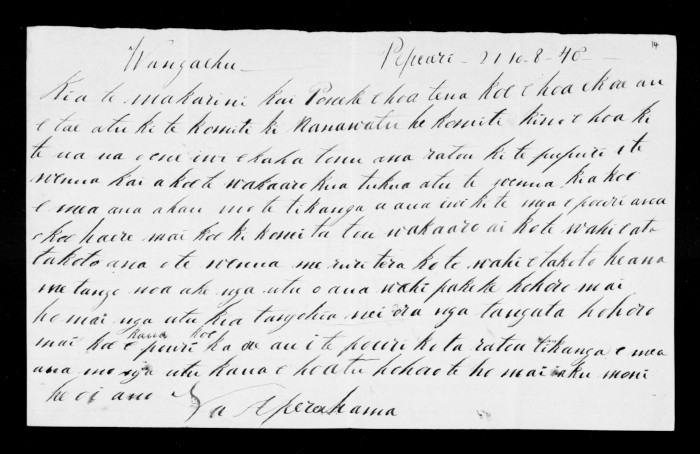 14
Wangaehu Pepuari - 21 10 - 8 - 48
Kia te makarini kai Poneke e hoa tena koe e hoa ekoa au
e tae atu ki te komiti ki Manawatu he komite kino e hoa ki
te ua na o enei iwi e kaha tonu ana ratou ki te pupuri i te
wenua kai a koe te wakaaro kua tukua atu te wenua kia koe
e mea ana ahau mo te tikanga a aua iwi ki te nga e pouri ana
e koe haere mai koe ki komi ta tou wakaaro ai ko te wahi e ata
takoto ana o te wenua me ruri tera ko te wahi e takoto he ana
me tango noa ake nga utu o ana wahi pakeke hohoro mai
ho mai nga utu kia tangohia wei ora nga tangata hohoro
kaua koe
mai koe e pouri ka ou au i te pouri ko ta ratou tikanga e mea
ana mo nga utu kaua e hoatu hohoro te ho mai aku moni
he oi ano Na Aperahama